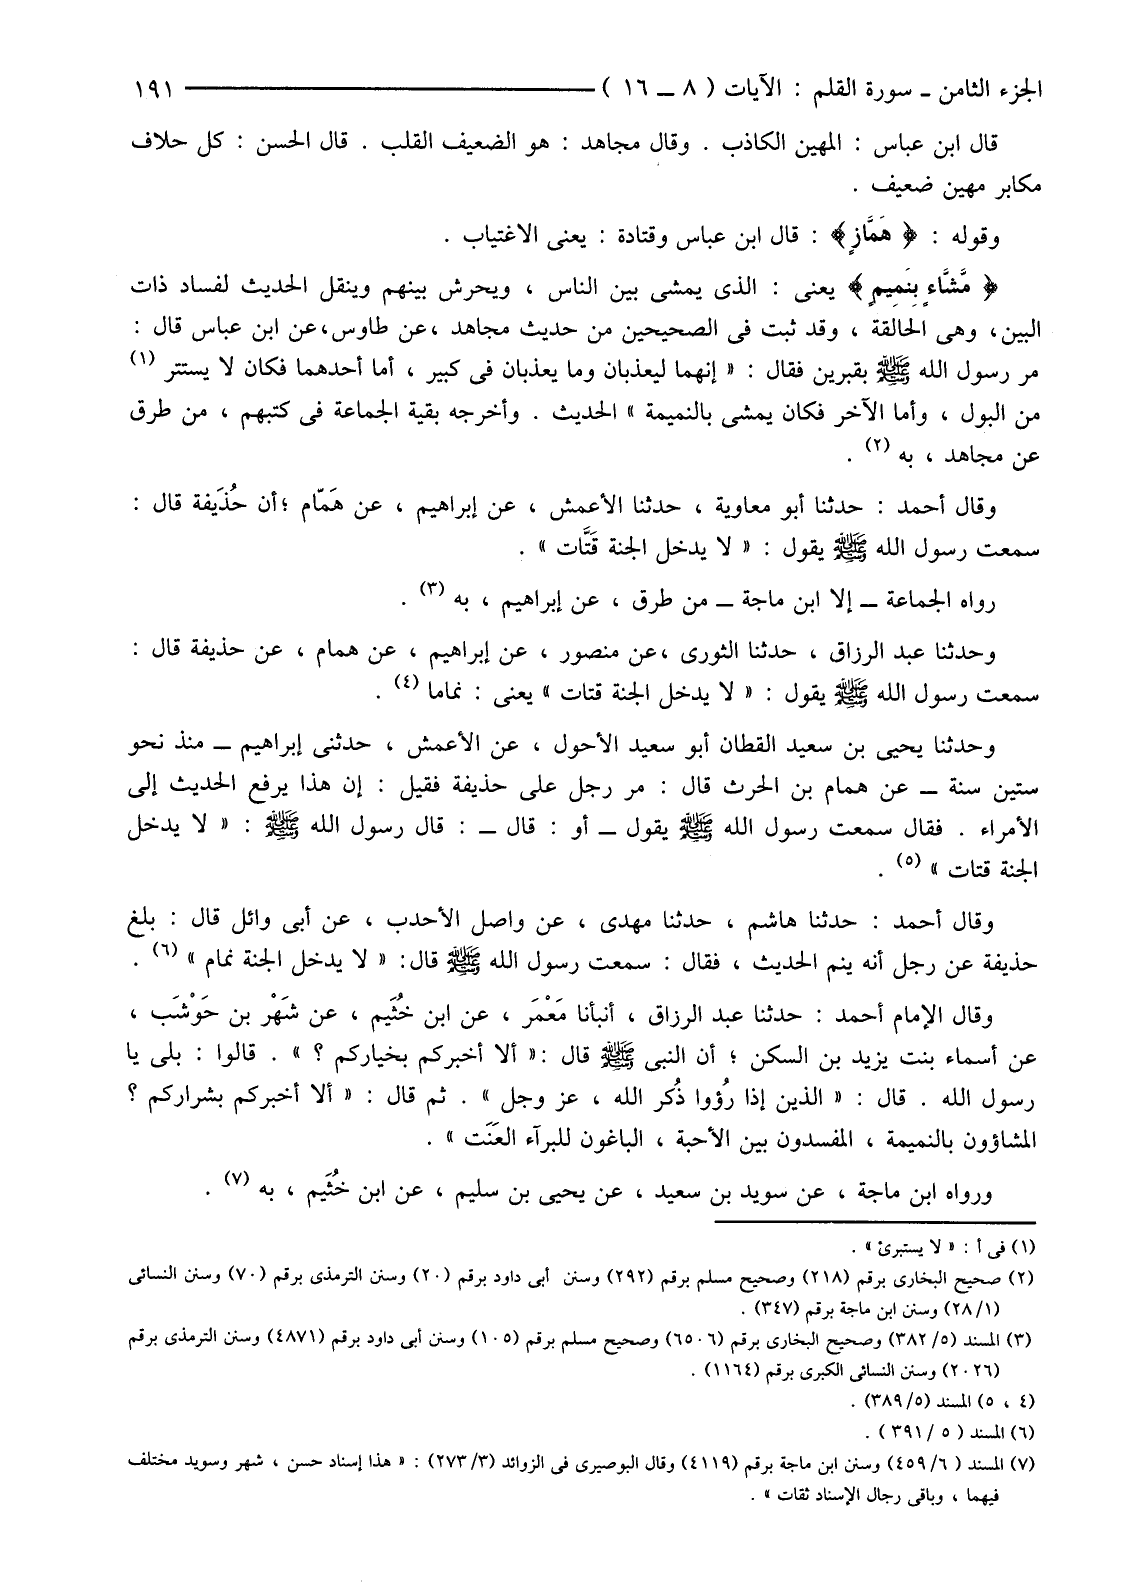 الجزء الثامن ـ سورة القلم : الآيات ( ٨ ــ ١٦ ) ــــــــــ ١٩١
قال ابن عباس : المهين الكاذب . وقال مجاهد : هو الضعيف القلب . قال الحسن : كل حلاف
مكابر مهين ضعيف .
وقوله : ﴿ هَمَّازٍ ﴾ : قال ابن عباس وقتادة : يعنى الاغتياب .
﴿ مَّشَّاءٍ بِنَمِيمٍ ﴾ يعنى : الذى يمشى بين الناس ، ويحرش بينهم وينقل الحديث لفساد ذات
البين، وهى الحالقة ، وقد ثبت فى الصحيحين من حديث مجاهد ،عن طاوس،عن ابن عباس قال :
مر رسول الله ﷺ بقبرين فقال : « إنهما ليعذبان وما يعذبان فى كبير ، أما أحدهما فكان لا يستتر (١)
من البول ، وأما الآخر فكان يمشى بالنميمة » الحديث . وأخرجه بقية الجماعة فى كتبهم ، من طرق
عن مجاهد ، به (٢) .
وقال أحمد : حدثنا أبو معاوية ، حدثنا الأعمش ، عن إبراهيم ، عن هَمّام ؛أن حُذَيفة قال :
سمعت رسول الله ﷺ يقول : « لا يدخل الجنة قَتَّات » .
رواه الجماعة ــ إلا ابن ماجة ــ من طرق ، عن إبراهيم ، به (٣) .
وحدثنا عبد الرزاق ، حدثنا الثورى ،عن منصور ، عن إبراهيم ، عن همام ، عن حذيفة قال :
سمعت رسول الله ﷺ يقول : « لا يدخل الجنة قتات » يعنى : نماما (٤) .
وحدثنا يحيى بن سعيد القطان أبو سعيد الأحول ، عن الأعمش ، حدثنى إبراهيم ــ منذ نحو
ستين سنة ــ عن همام بن الحرث قال : مر رجل على حذيفة فقيل : إن هذا يرفع الحديث إلى
الأمراء . فقال سمعت رسول الله ﷺ يقول ــ أو : قال ــ : قال رسول الله ﷺ : « لا يدخل
الجنة قتات » (٥) .
وقال أحمد : حدثنا هاشم ، حدثنا مهدى ، عن واصل الأحدب ، عن أبى وائل قال : بلغ
حذيفة عن رجل أنه ينم الحديث ، فقال : سمعت رسول الله ﷺ قال: « لا يدخل الجنة نمام » (٦) .
وقال الإمام أحمد : حدثنا عبد الرزاق ، أنبأنا مَعْمَر ، عن ابن خُثَيم ، عن شَهْر بن حَوْشَب ،
عن أسماء بنت يزيد بن السكن ؛ أن النبى ﷺ قال :« ألا أخبركم بخياركم ؟ » . قالوا : بلى يا
رسول الله . قال : « الذين إذا رُؤوا ذُكر الله ، عز وجل » . ثم قال : « ألا أخبركم بشراركم ؟
المشاؤون بالنميمة ، المفسدون بين الأحبة ، الباغون للبرآء العَنَت » .
ورواه ابن ماجة ، عن سويد بن سعيد ، عن يحيى بن سليم ، عن ابن خُثَيم ، به (٧) .
(١) فى أ : « لا يستبرئ » .
(٢) صحيح البخارى برقم (٢١٨) وصحيح مسلم برقم (٢٩٢) وسنن أبى داود برقم (٢٠) وسنن الترمذى برقم (٧٠) وسنن النسائى
(٢٨/١) وسنن ابن ماجة برقم (٣٤٧) .
(٣) المسند (٣٨٢/٥) وصحيح البخارى برقم (٦٥٠٦) وصحيح مسلم برقم (١٠٥) وسنن أبى داود برقم (٤٨٧١) وسنن الترمذى برقم
(٢٠٢٦) وسنن النسائى الكبرى برقم (١١٦٤) .
(٤ ، ٥) المسند (٣٨٩/٥) .
(٦) المسند ( ٥ / ٣٩١ ) .
(٧) المسند ( ٤٥٩/٦) وسنن ابن ماجة برقم (٤١١٩) وقال البوصيرى فى الزوائد (٢٧٣/٣) : « هذا إسناد حسن ، شهر وسويد مختلف
فيهما ، وباقى رجال الإسناد ثقات » .